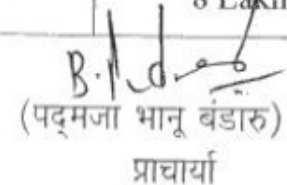 8 Lakh
(पद्मजा भानू बंडारु)
प्राचार्या